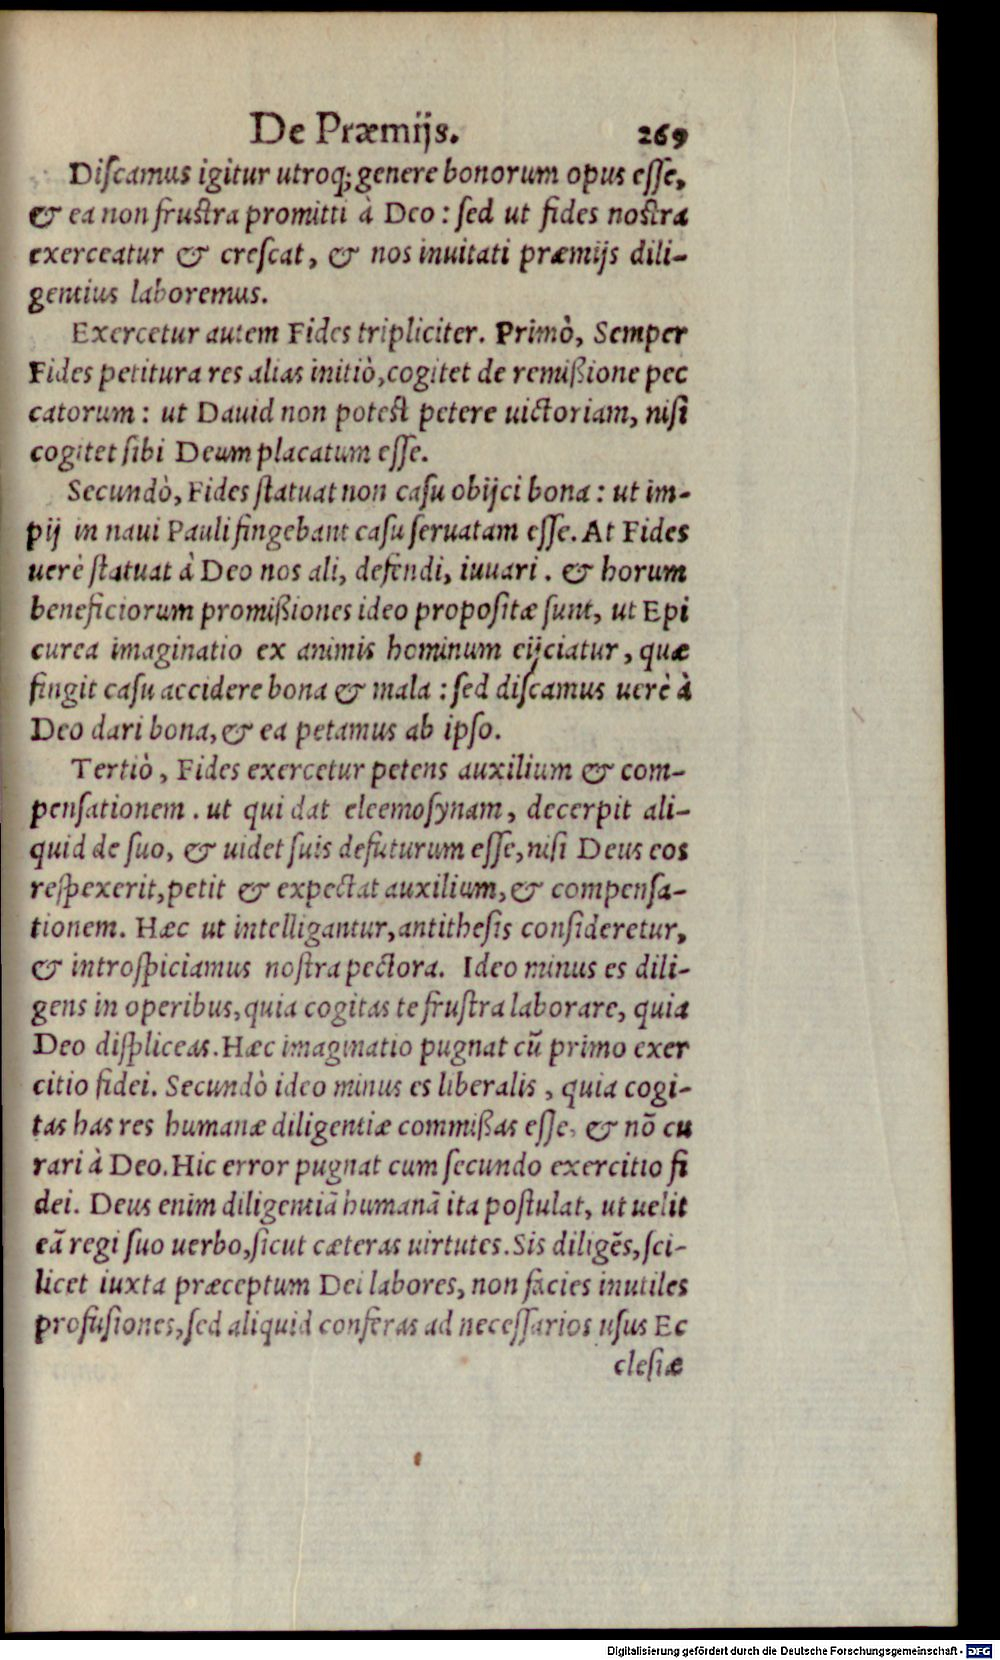 De Præmijs. 269
Diſcamus igitur utroq; genere bonorum opus eſſe,
& ea non fruſtra promitti à Deo : ſed ut fides noſtra
exerceatur & creſcat, & nos inuitati præmijs dili-
gentius laboremus.
Exercetur autem Fides tripliciter. Primò, Semper
Fides petitura res alias initiò, cogitet de remiſſione pec
catorum : ut Dauid non poteſt petere uictoriam, niſi
cogitet ſibi Deum placatum eſſe.
Secundò, Fides ſtatuat non caſu obijci bona : ut im-
pij in naui Pauli fingebant caſu ſeruatam eſſe. At Fides
uerè ſtatuat à Deo nos ali, defendi, iuuari . & horum
beneficiorum promiſſiones ideo propoſitæ ſunt, ut Epi
curea imaginatio ex animis hominum eijciatur, quæ
fingit caſu accidere bona & mala : ſed diſcamus uerè à
Deo dari bona, & ea petamus ab ipſo.
Tertiò, Fides exercetur petens auxilium & com-
penſationem . ut qui dat eleemoſynam, decerpit ali-
quid de ſuo, & uidet ſuis defuturum eſſe, niſi Deus eos
reſpexerit, petit & expectat auxilium, & compenſa-
tionem. Hæc ut intelligantur, antitheſis conſideretur,
& introſpiciamus noſtra pectora. Ideo minus es dili-
gens in operibus, quia cogitas te fruſtra laborare, quia
Deo diſpliceas. Hæc imaginatio pugnat cū primo exer
citio fidei. Secundò ideo minus es liberalis , quia cogi-
tas has res humanæ diligentiæ commiſſas eſſe, & nō cu
rari à Deo. Hic error pugnat cum ſecundo exercitio fi
dei. Deus enim diligentiā humanā ita poſtulat, ut uelit
eā regi ſuo uerbo, ſicut cæteras uirtutes. Sis diligēs, ſci-
licet iuxta præceptum Dei labores, non facies inutiles
profuſiones, ſed aliquid conferas ad neceſſarios uſus Ec
cleſiæ
Digitalisierung gefördert durch die Deutsche Forschungsgemeinschaft - DFG